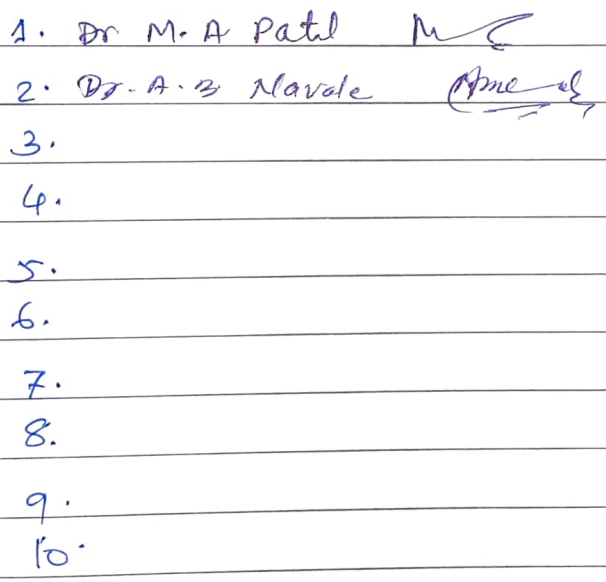 1. Dr M. A Patil
2. Dr. A. B Navale
3.
4.
5.
6.
7.
8.
9.
10.